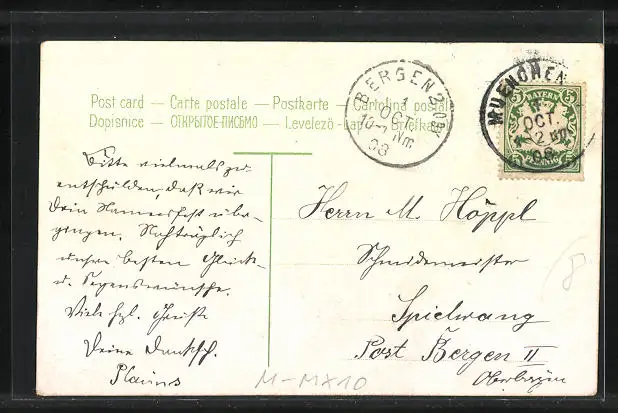 Post card — Carte postale — Postkarte — Cartolina postale
Dopisnice — ОТКРЫТОЕ-ПИСЬМО — Levelező-Lap — Briefkaart
BERGEN 2 OBB
OCT.
10-1 Nm.
08
MUENCHEN
OCT.
2 Nm.
08
BAYERN
5 5
PFENNIG
Bitte vielmals zu
entschulden, daß wir
Dein Namensfest über-
gingen. Nachträglich
unsere besten Glück-
u. Segenswünsche.
Viele hzl. Grüße
Deine danksch.
Herrn M. Höppl
Schmidemeister
Spielwang
Post Bergen II
Oberbayern
8
M-MX10